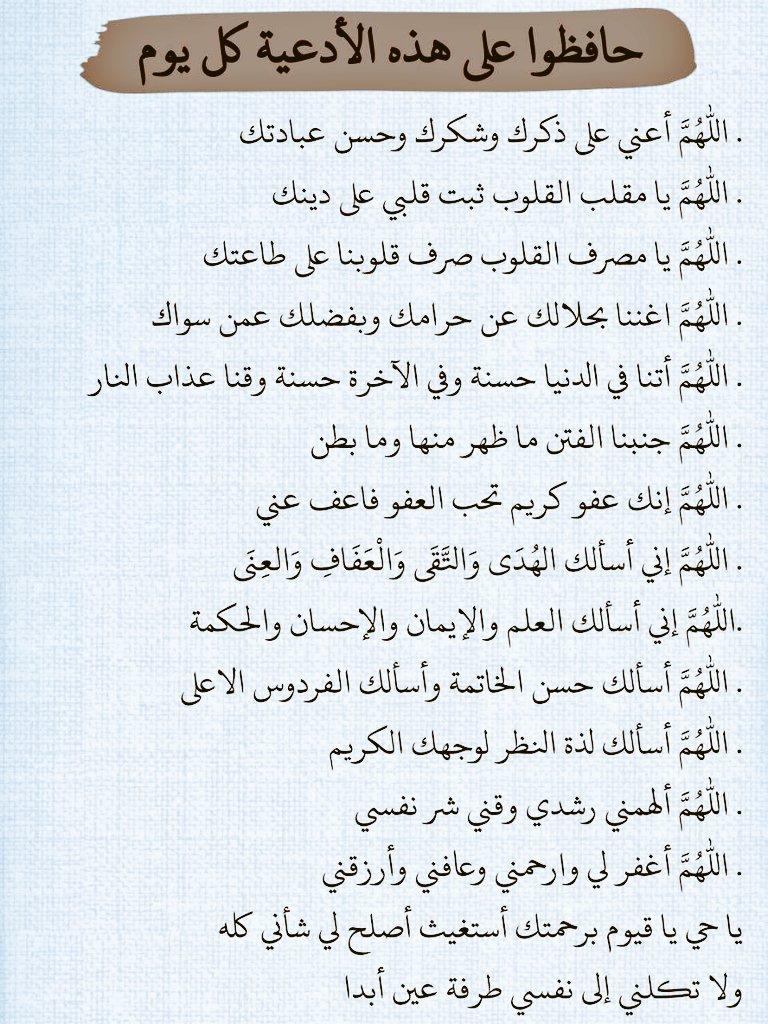 حافظوا على هذه الأدعية كل يوم
. اللَّهُمَّ أعني على ذكرك وشكرك وحسن عبادتك
. اللَّهُمَّ يا مقلب القلوب ثبت قلبي على دينك
. اللَّهُمَّ يا مصرف القلوب صرف قلوبنا على طاعتك
. اللَّهُمَّ اغننا بحلالك عن حرامك وبفضلك عمن سواك
. اللَّهُمَّ أتنا في الدنيا حسنة وفي الآخرة حسنة وقنا عذاب النار
. اللَّهُمَّ جنبنا الفتن ما ظهر منها وما بطن
. اللَّهُمَّ إنك عفو كريم تحب العفو فاعف عني
. اللَّهُمَّ إني أسألك الهُدَى وَالتَّقَى وَالْعَفَافِ وَالعِنَى
.اللَّهُمَّ إني أسألك العلم والإيمان والإحسان والحكمة
. اللَّهُمَّ أسألك حسن الخاتمة وأسألك الفردوس الاعلى
. اللَّهُمَّ أسألك لذة النظر لوجهك الكريم
. اللَّهُمَّ ألهمني رشدي وقني شر نفسي
. اللَّهُمَّ أغفر لي وارحمني وعافني وأرزقني
يا حي يا قيوم برحمتك أستغيث أصلح لي شأني كله
ولا تكلني إلى نفسي طرفة عين أبدا